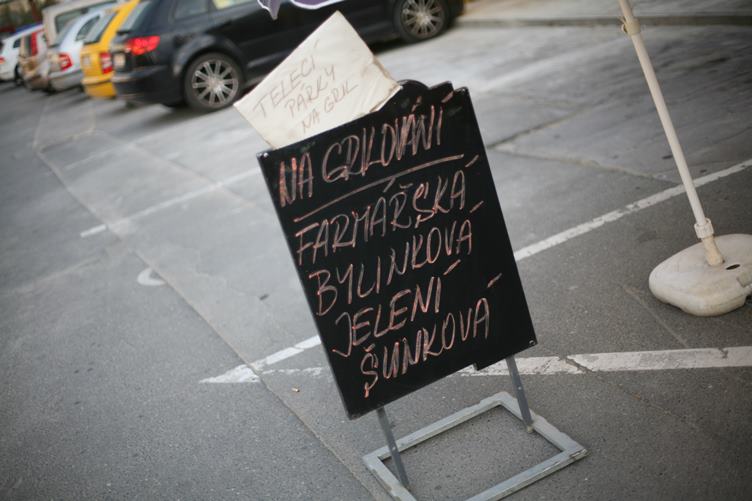 TELECÍ
PÁRKY
NA GRIL
NA GRILOVÁNÍ
FARMÁŘSKÁ
BYLINKOVÁ
JELENÍ
ŠUNKOVÁ